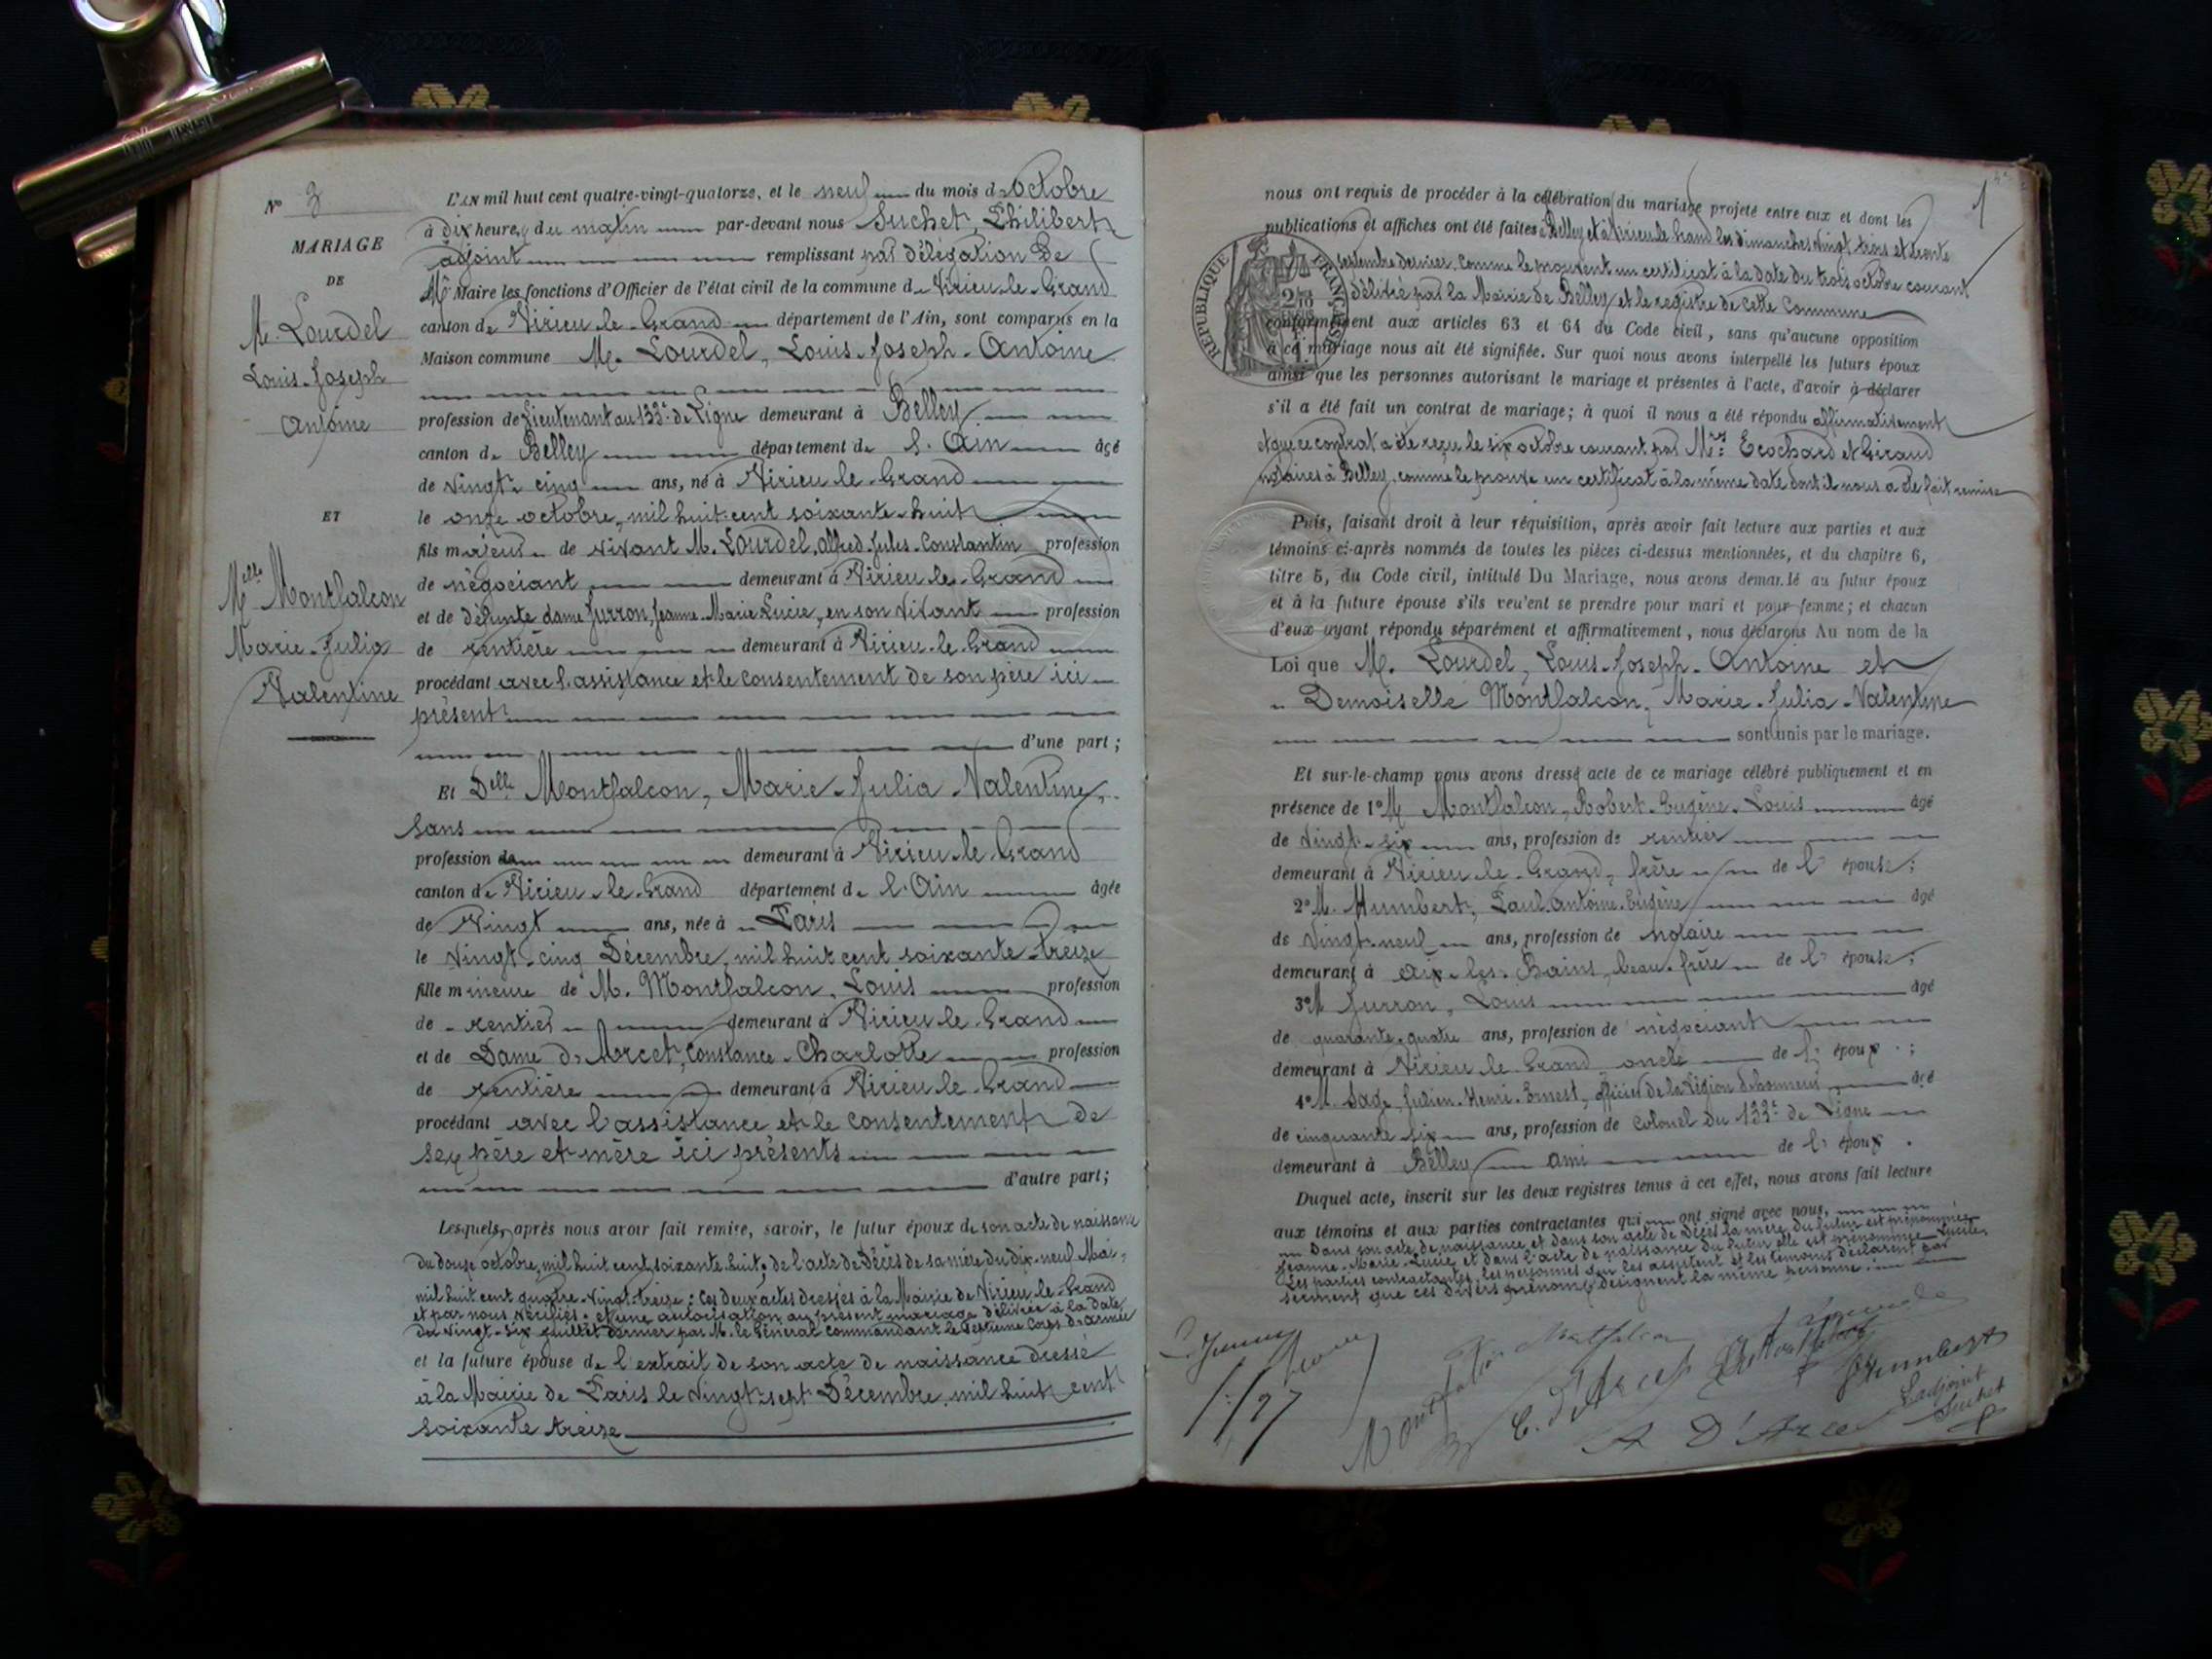 N° 3
MARIAGE
DE
M. Lourdel
Louis-Joseph
Antoine
ET
Melle Montfalcon
Marie-Julia
Valentine
L'AN mil huit cent quatre-vingt-quatorze, et le neuf du mois d'Octobre
à dix heures du matin par-devant nous Suchet, Philibert
adjoint remplissant par délégation de
Mr Maire les fonctions d'Officier de l'état civil de la commune de Virieu-le-Grand
canton de Virieu-le-Grand département de l'Ain, sont comparus en la
Maison commune M. Lourdel, Louis-Joseph-Antoine
profession de Lieutenant au 133e de Ligne demeurant à Belley
canton de Belley département de l'Ain âgé
de vingt-cinq ans, né à Virieu-le-Grand
le onze octobre, mil huit cent soixante-huit
fils majeur de vivant M. Lourdel, Alfred-Jules-Constantin profession
de négociant demeurant à Virieu-le-Grand
et de défunte dame Jurron, Jeanne-Marie-Lucie, en son vivant profession
de rentière demeurant à Virieu-le-Grand
procédant avec l'assistance et le consentement de son père ici
présent
d'une part ;
Et Delle Montfalcon, Marie-Julia-Valentine,
sans
profession de demeurant à Virieu-le-Grand
canton de Virieu-le-Grand département de l'Ain âgée
de Vingt ans, née à Paris
le vingt-cinq Décembre, mil huit cent soixante-treize
fille mineure de M. Montfalcon, Louis profession
de rentier demeurant à Virieu-le-Grand
et de Dame Constance-Charlotte profession
de rentière demeurant à Virieu-le-Grand
procédant avec l'assistance et le consentement de
ses père et mère ici présents
d'autre part ;
Lesquels, après nous avoir fait remise, savoir, le futur époux de son acte de naissance
du douze octobre, mil huit cent soixante-huit ; de l'acte de Décès de sa mère du dix-neuf Mai
mil huit cent quatre-vingt-treize ; ces deux actes dressés à la Mairie de Virieu-le-Grand
et par nous vérifiés ; et une autorisation au présent mariage délivrée à la date
du vingt-six juillet dernier par M. le Général commandant le Septième Corps d'armée
et la future épouse de l'extrait de son acte de naissance dressé
à la Mairie de Paris le vingt-sept Décembre, mil huit cent
soixante treize
1
nous ont requis de procéder à la célébration du mariage projeté entre eux et dont les
publications et affiches ont été faites à Belley et à Virieu-le-Grand les dimanches vingt trois et trente
septembre dernier, comme le prouvent un certificat à la date du trois octobre courant
délivré par la Mairie de Belley et le registre de cette commune
conformément aux articles 63 et 64 du Code civil, sans qu'aucune opposition
à ce mariage nous ait été signifiée. Sur quoi nous avons interpellé les futurs époux
ainsi que les personnes autorisant le mariage et présentes à l'acte, d'avoir à déclarer
s'il a été fait un contrat de mariage ; à quoi il nous a été répondu affirmativement
et que ce contrat a été reçu le six octobre courant par Mrs Ecochard et Giraud
notaires à Belley, comme le prouve un certificat à la même date dont il nous a été fait remise
RÉPUBLIQUE FRANÇAISE
Puis, faisant droit à leur réquisition, après avoir fait lecture aux parties et aux
témoins ci-après nommés de toutes les pièces ci-dessus mentionnées, et du chapitre 6,
titre 5, du Code civil, intitulé Du Mariage, nous avons demandé au futur époux
et à la future épouse s'ils veulent se prendre pour mari et pour femme ; et chacun
d'eux ayant répondu séparément et affirmativement, nous déclarons Au nom de la
Loi que M. Lourdel, Louis-Joseph-Antoine et
Demoiselle Montfalcon, Marie-Julia-Valentine
sont unis par le mariage.
Et sur-le-champ nous avons dressé acte de ce mariage célébré publiquement et en
présence de 1° M Montfalcon, Robert-Eugène-Louis âgé
de vingt-six ans, profession de rentier
demeurant à Virieu-le-Grand, frère de l' épouse ;
2° M. Humbert, Paul-Antoine-Eugène âgé
de vingt-neuf ans, profession de notaire
demeurant à Aix-les-Bains, beau-frère de l' épouse ;
3° M Jurron, Louis âgé
de quarante-quatre ans, profession de négociant
demeurant à Virieu-le-Grand oncle de l' époux ;
4° M. Sage, Julien-Henri-Ernest, officier de la Légion d'honneur âgé
de cinquante six ans, profession de Colonel du 133e de Ligne
demeurant à Belley ami de l' époux .
Duquel acte, inscrit sur les deux registres tenus à cet effet, nous avons fait lecture
aux témoins et aux parties contractantes qui ont signé avec nous,
Dans son acte de naissance et dans son acte de Décès la mère du futur est prénommée
Jeanne-Marie-Lucie et dans l'acte de naissance du futur elle est prénommée Lucile,
Les parties contractantes, les personnes qui les assistent et les témoins déclarent par
serment que ces divers prénoms désignent la même personne
Montfalcon
C. d'Arcet
Humbert
A D'Arcet
L'adjoint
Suchet